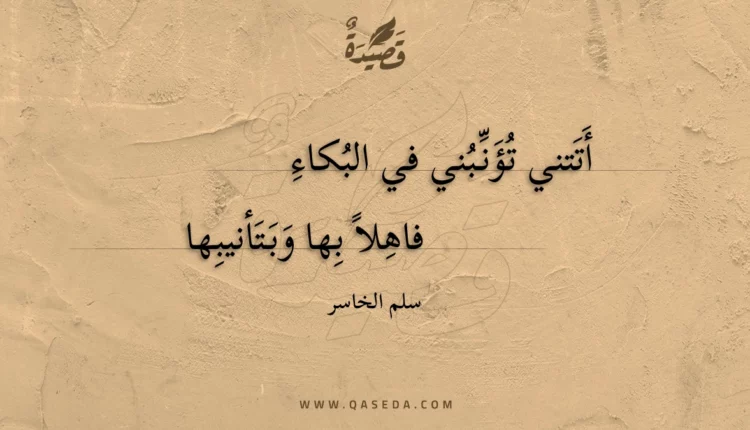 قَصِيدَةٌ
أَتَتني تُؤَنِّبُني في البُكاءِ
فاهِلاً بِها وَبَتَأنيبِها
سلم الخاسر
WWW.QASEDA.COM